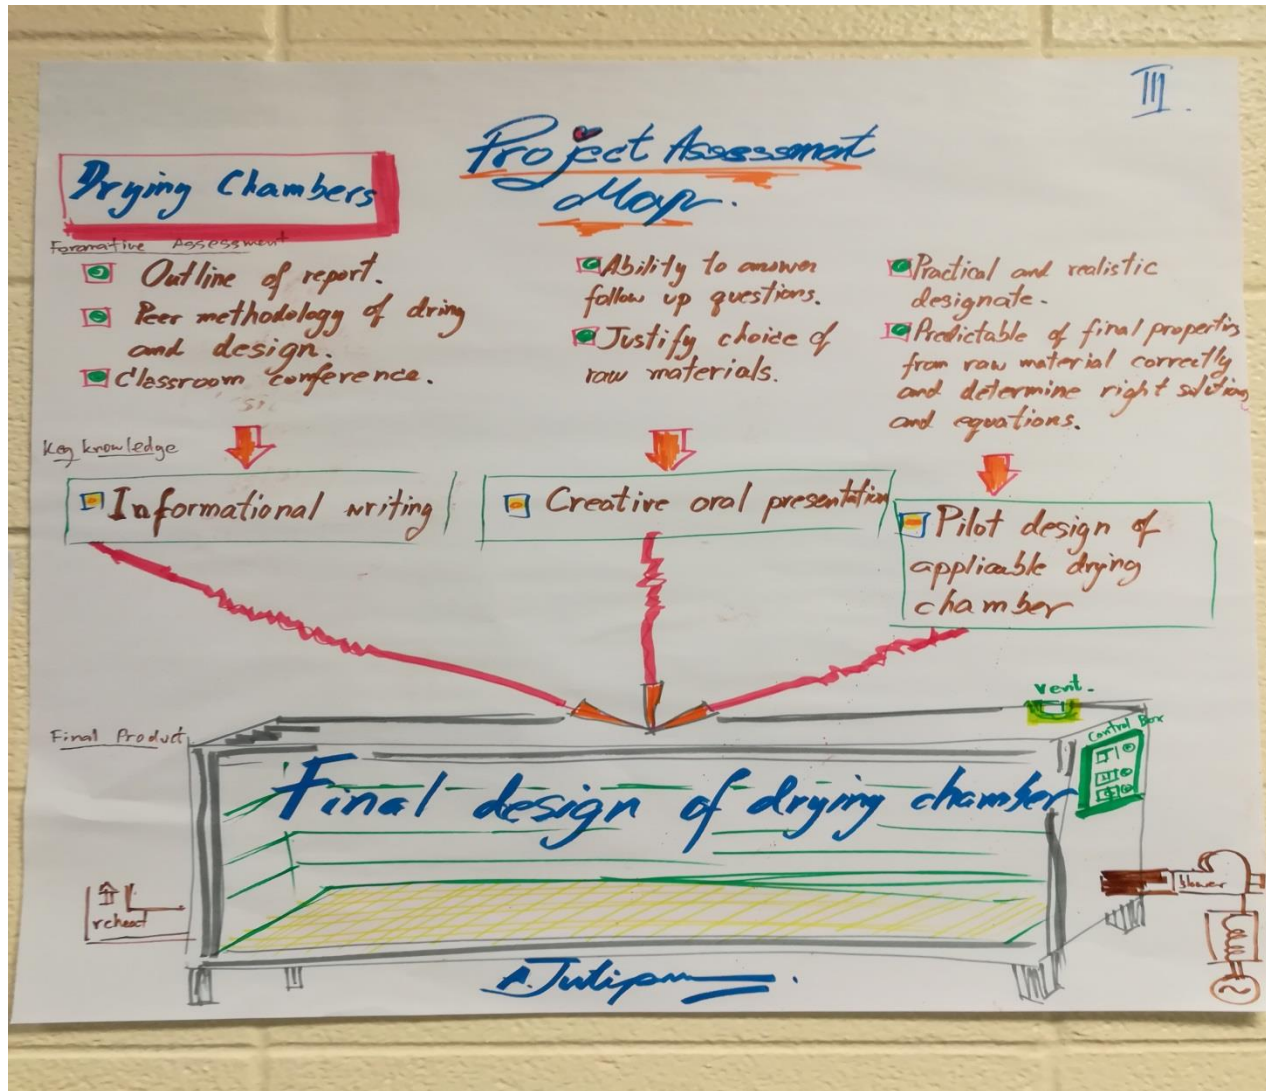 III.
Project Assessment
Map.
Drying Chambers
Foramative Assessment
Outline of report.
Peer methodology of dring
and design.
Classroom conference.
Ability to answer
follow up questions.
Justify choice of
raw materials.
Practical and realistic
designate.
Predictable of final propertis
from raw material correctly
and determine right solutions
and equations.
Key knowledge
Informational writing
Creative oral presentation
Pilot design of
applicable drying
chamber
Final Product
vent.
Control Box
Final design of drying chamber
blower